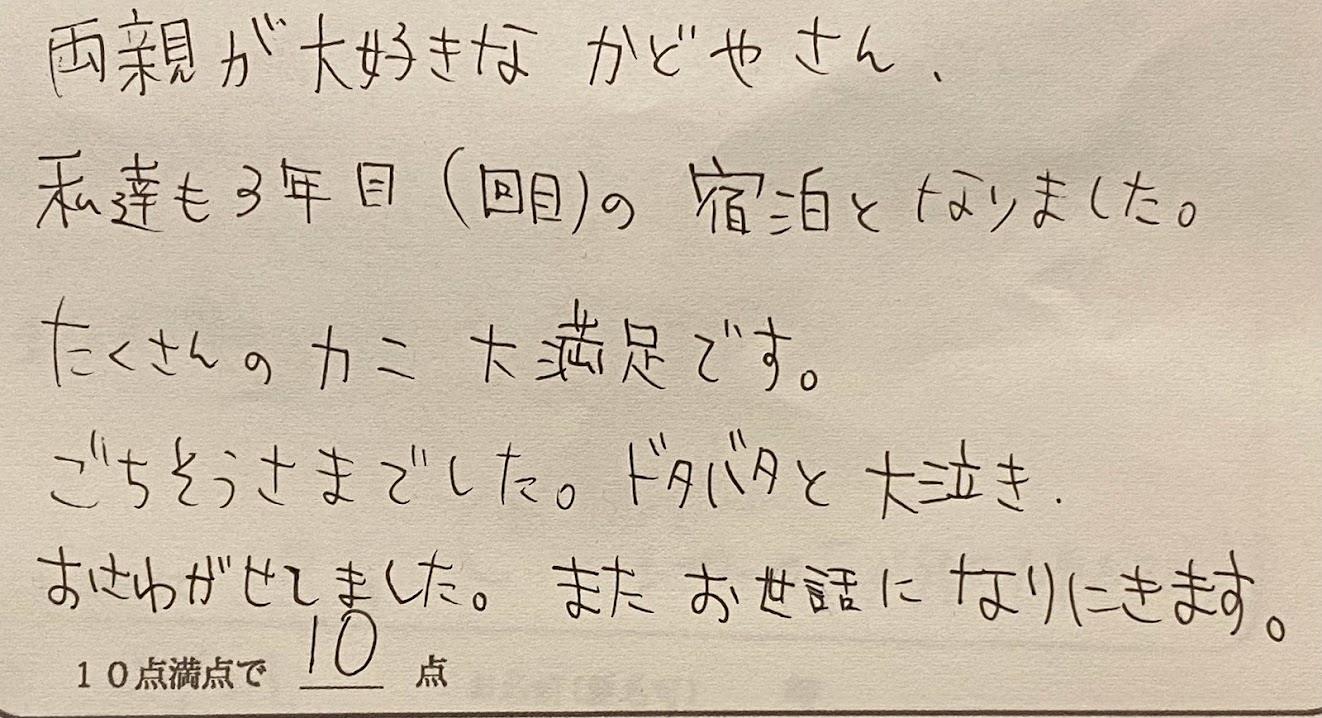 両親が大好きな かどやさん、
私達も3年目(回目)の 宿泊となりました。
たくさんの カニ 大満足です。
ごちそうさまでした。ドタバタと大泣き、
おさわがせしました。 また お世話に なりにきます。
10点満点で 10 点